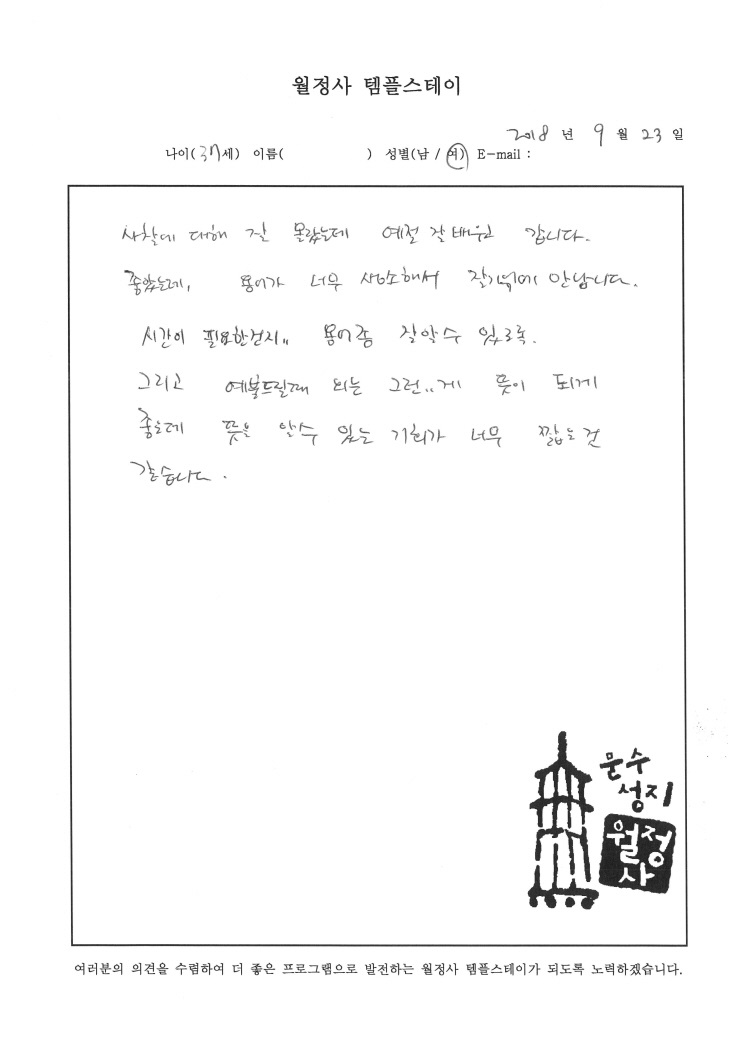 월정사 템플스테이
2018 년 9 월 23 일
나이(37세) 이름( ) 성별(남 / 여) E-mail :
사찰에 대해 잘 몰랐는데 예절 잘 배우고 갑니다.
좋았는데, 용어가 너무 생소해서 잘기억에 안남니다.
시간이 필요한건지,, 용어좀 잘알수 있도록.
그리고 예불드릴때 외는 그런..게 뜻이 되게
좋은데 뜻을 알수 있는 기회가 너무 짧는것
같습니다.
문수
성지
월정
사
여러분의 의견을 수렴하여 더 좋은 프로그램으로 발전하는 월정사 템플스테이가 되도록 노력하겠습니다.